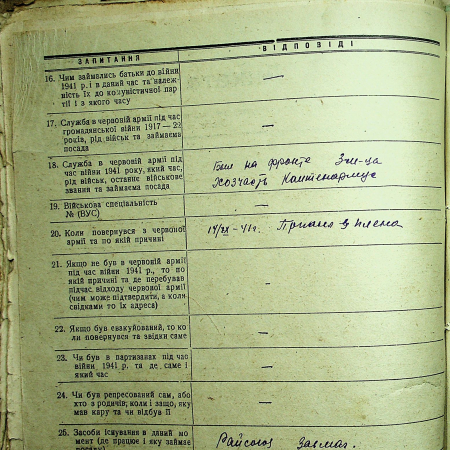 ЗАПИТАННЯ
ВІДПОВІДІ
16. Чим займались батьки до війни
1941 р. і в даний час та належ-
ність їх до комуністичної пар-
тії і з якого часу
—
17. Служба в червоній армії під час
громадянської війни 1917—22
років, рід військ та займаєма
посада
—
18. Служба в червоній армії під
час війни 1941 року, який час,
рід військ, останнє військове
звання та займаєма посада
Был на фронте 3 м-ца
Хозчасть
19. Військова спеціальність
№ (ВУС)
—
20. Коли повернувся з червоної
армії та по якій причині
41г. Пришел з плена
21. Якщо не був в червоній армії
під час війни 1941 р., то по
якій причині та де перебував
підчас відходу червоної армії
(чим може підтвердити, а коли
свідками то їх адреса)
—
22. Якщо був евакуйований, то ко-
ли повернувся та звідки саме
—
23. Чи був в партизанах під час
війни 1941 р. та де саме і
який час
—
24. Чи був репресований сам, або
хто з родичів; коли і защо, яку
мав кару та чи відбув її
—
25. Засоби існування в даний мо-
мент (де працює і яку займає
Райсоюз Завмаг.